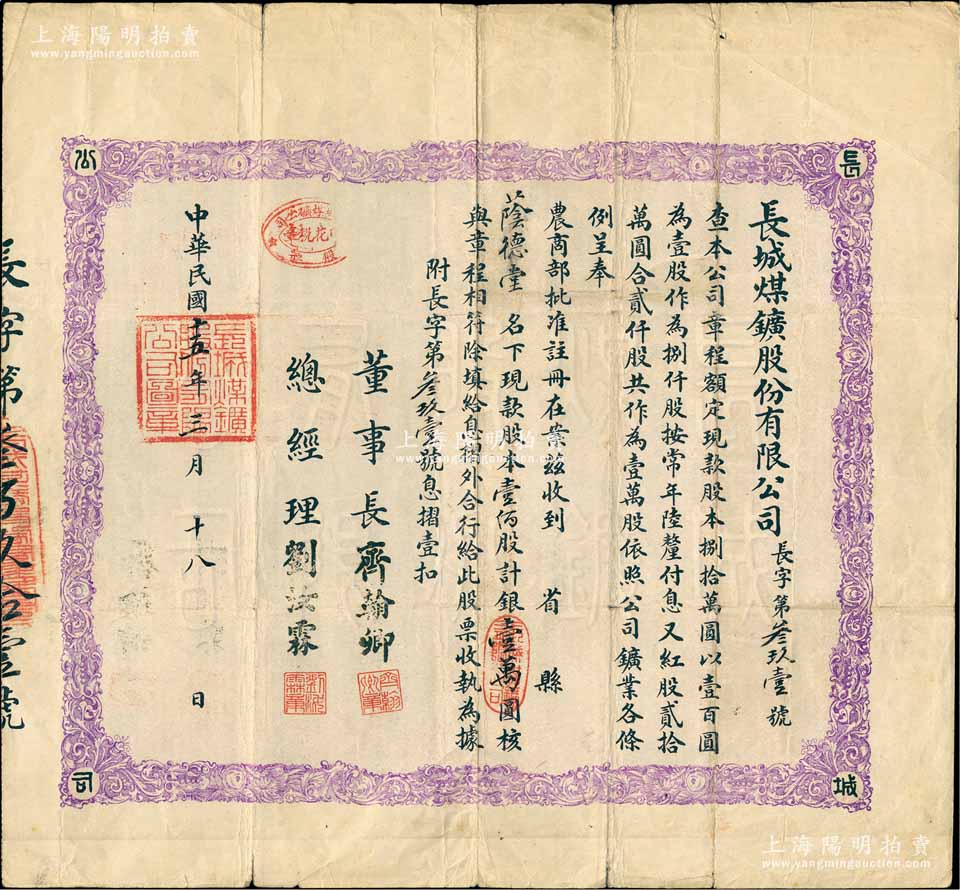 上海陽明拍賣
www.yangmingauction.com
上海陽明拍賣
www.yangmingauction.com
長
城
公
司
長城煤鑛股份有限公司
長字第叁玖壹號
查本公司章程額定現款股本捌拾萬圓以壹百圓
為壹股作為捌仟股按常年陸釐付息又紅股貳拾
萬圓合貳仟股共作為壹萬股依照公司鑛業各條
例呈奉
農商部批准註冊在案茲收到 省 縣
蔭德堂 名下現款股本壹佰股計銀壹萬圓核
與章程相符除填給息摺外合行給此股票收執為據
附長字第叁玖壹號息摺壹扣
董事長齊翰卿
總經理劉汝霖
中華民國十五年三月十八日
長城煤鑛股份有限公司圖章
長字第叁百玖拾壹號
上海陽明拍賣
www.yangmingauction.com
上海陽明拍賣
www.yangmingauction.com